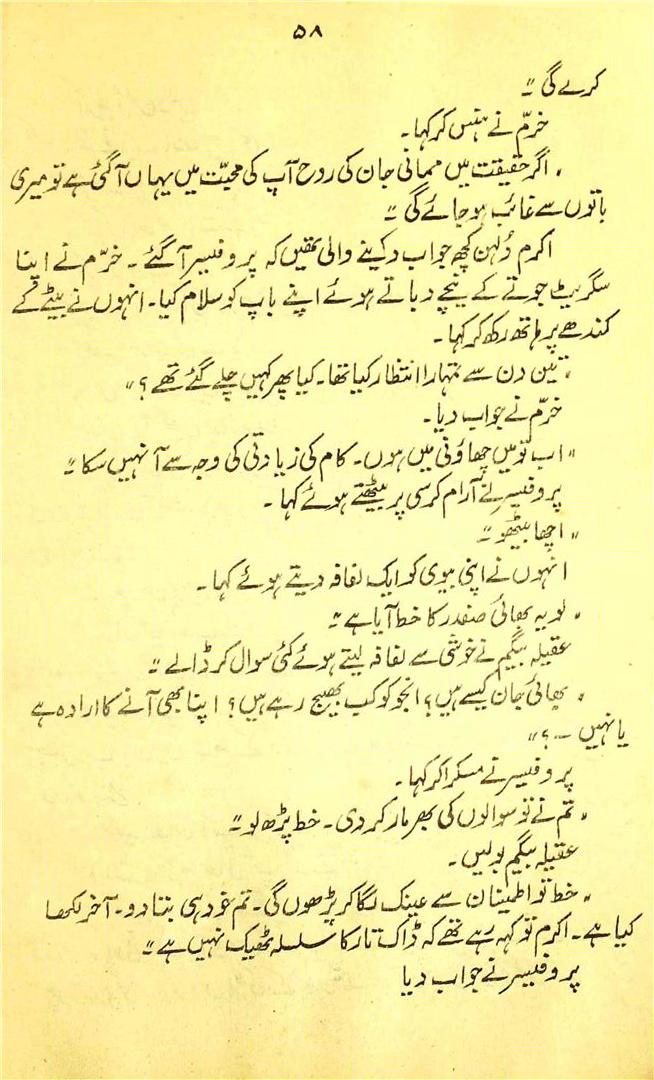 ۵۸
کرے گی ۔"
خرّم نے ہنس کر کہا۔
"اگر حقیقت میں ممانی جان کی روح آپ کی محبّت میں یہاں آ گئی ہے تو میری
باتوں سے غائب ہو جائے گی ۔"
اکرم دُلہن کچھ جواب دینے والی تھیں کہ پروفیسر آ گئے ۔ خرّم نے اپنا
سگریٹ جوتے کے نیچے دباتے ہوئے اپنے باپ کو سلام کیا۔ انہوں نے بیٹے کے
کندھے پر ہاتھ رکھ کر کہا۔
"تین دن سے تمہارا انتظار کیا تھا۔ کیا پھر کہیں چلے گئے تھے ؟"
خرّم نے جواب دیا۔
"اب تو میں چھاؤنی میں ہوں۔ کام کی زیادتی کی وجہ سے آ نہیں سکا ۔"
پروفیسر نے آرام کرسی پر بیٹھتے ہوئے کہا۔
"اچھا بیٹھو ۔"
انہوں نے اپنی بیوی کو ایک لفافہ دیتے ہوئے کہا۔
"لو یہ بھائی صفدر کا خط آیا ہے ۔"
عقیلہ بیگم نے خوشی سے لفافہ لیتے ہوئے کئی سوال کر ڈالے ۔"
"بھائی جان کیسے ہیں؟ انجو کو کب بھیج رہے ہیں؟ اپنا بھی آنے کا ارادہ ہے
یا نہیں ۔۔؟"
پروفیسر نے مسکرا کر کہا۔
"تم نے تو سوالوں کی بھرمار کر دی۔ خط پڑھ لو ۔"
عقیلہ بیگم بولیں۔
"خط تو اطمینان سے عینک لگا کر پڑھوں گی۔ تم خود ہی بتا دو۔ آخر لکھا
کیا ہے۔ اکرم تو کہہ رہے تھے کہ ڈاک تار کا سلسلہ ٹھیک نہیں ہے ۔"
پروفیسر نے جواب دیا